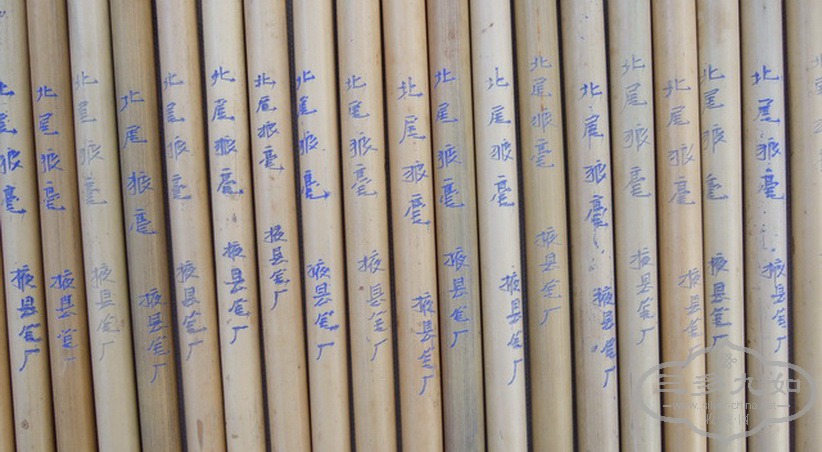 北尾狼毫 掖县笔厂
北尾狼毫 掖县笔厂
北尾狼毫 掖县笔厂
北尾狼毫 掖县笔厂
北尾狼毫 掖县笔厂
北尾狼毫 掖县笔厂
北尾狼毫 掖县笔厂
北尾狼毫 掖县笔厂
北尾狼毫 掖县笔厂
北尾狼毫 掖县笔厂
北尾狼毫 掖县笔厂
北尾狼毫 掖县笔厂
北尾狼毫 掖县笔厂
北尾狼毫 掖县笔厂
北尾狼毫 掖县笔厂
北尾狼毫 掖县笔厂
北尾狼毫 掖县笔厂
北尾狼毫 掖县笔厂
三多九如